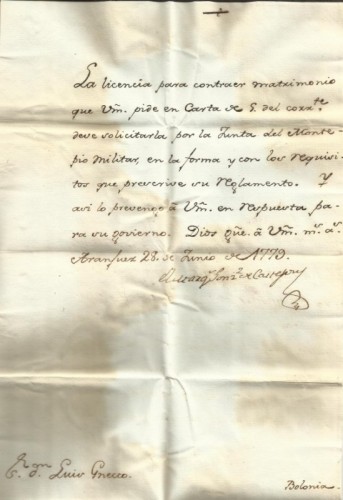 La licencia para contraer matrimonio
que Vm. pide en Carta de 5. del corr.te
deve solicitarla por la Junta del Monte-
pio Militar, en la forma y con los requisi-
tos que prescrive su Reglamento. Y
asi lo prevengo â Vm. en respuesta pa-
ra su govierno. Dios gũe. â Vm. m.s a.s
Aranjuez 28. de Junio de 1779.
S.or d.n Luis Greco.
Bolonia.